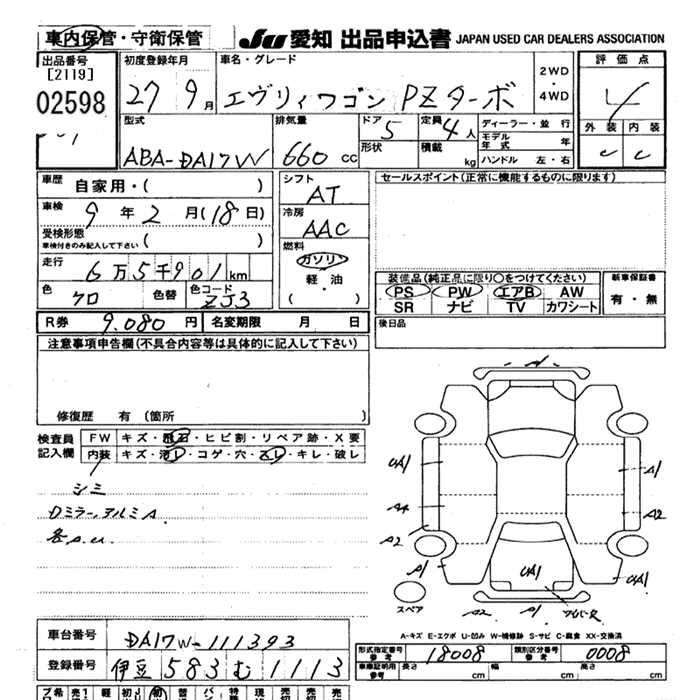 車内保管・守衛保管 JU 愛知 出品申込書 JAPAN USED CAR DEALERS ASSOCIATION
出品番号 [2119] 02598
初度登録年月 27 9月
車名・グレード エヴリィワゴン PZターボ 2WD・4WD
評価点 4
外装 内装
C C
型式 ABA-DA17W
排気量 660 cc
ドア 5 形状
定員 4人 積載 kg
ディーラー・並行
モデル年式 年
ハンドル 左・右
車歴 自家用・( )
車検 9年2月(18日)
受検形態 車検付きのみ記入して下さい ( )
走行 6万5千901km
色 クロ 色替 色コード ZJ3
シフト AT
冷房 AAC
燃料 ガソリン 軽・油 ( ・ )
セールスポイント(正常に機能するものに限ります)
装備品(純正品に限り○をつけてください)
PS PW エアB AW
SR ナビ TV カワシート
新車保証書 有・無
後日品
R券 9.080円 名変期限 月 日
注意事項申告欄(不具合内容等は具体的に記入して下さい)
修復歴 有(箇所 )
検査員記入欄 FW キズ・飛石・ヒビ割・リペア跡・X要
内装 キズ・汚レ・コゲ・穴・スレ・キレ・破レ
シミ
Dミラー、アルミA
各A.U.
UA1
A1
A4
A2
A2
A1
UA1
A1
A2
A1
ワイパーX
スペア
A-キズ E-エクボ U-凹み W-補修跡 S-サビ C-腐食 XX-交換済
車台番号 DA17W-111393
登録番号 伊豆 583 む 1113
形式指定番号 参考 18008 類別区分番号 参考 0008
車庫証明用 参考 長さ cm 幅 cm 高さ cm